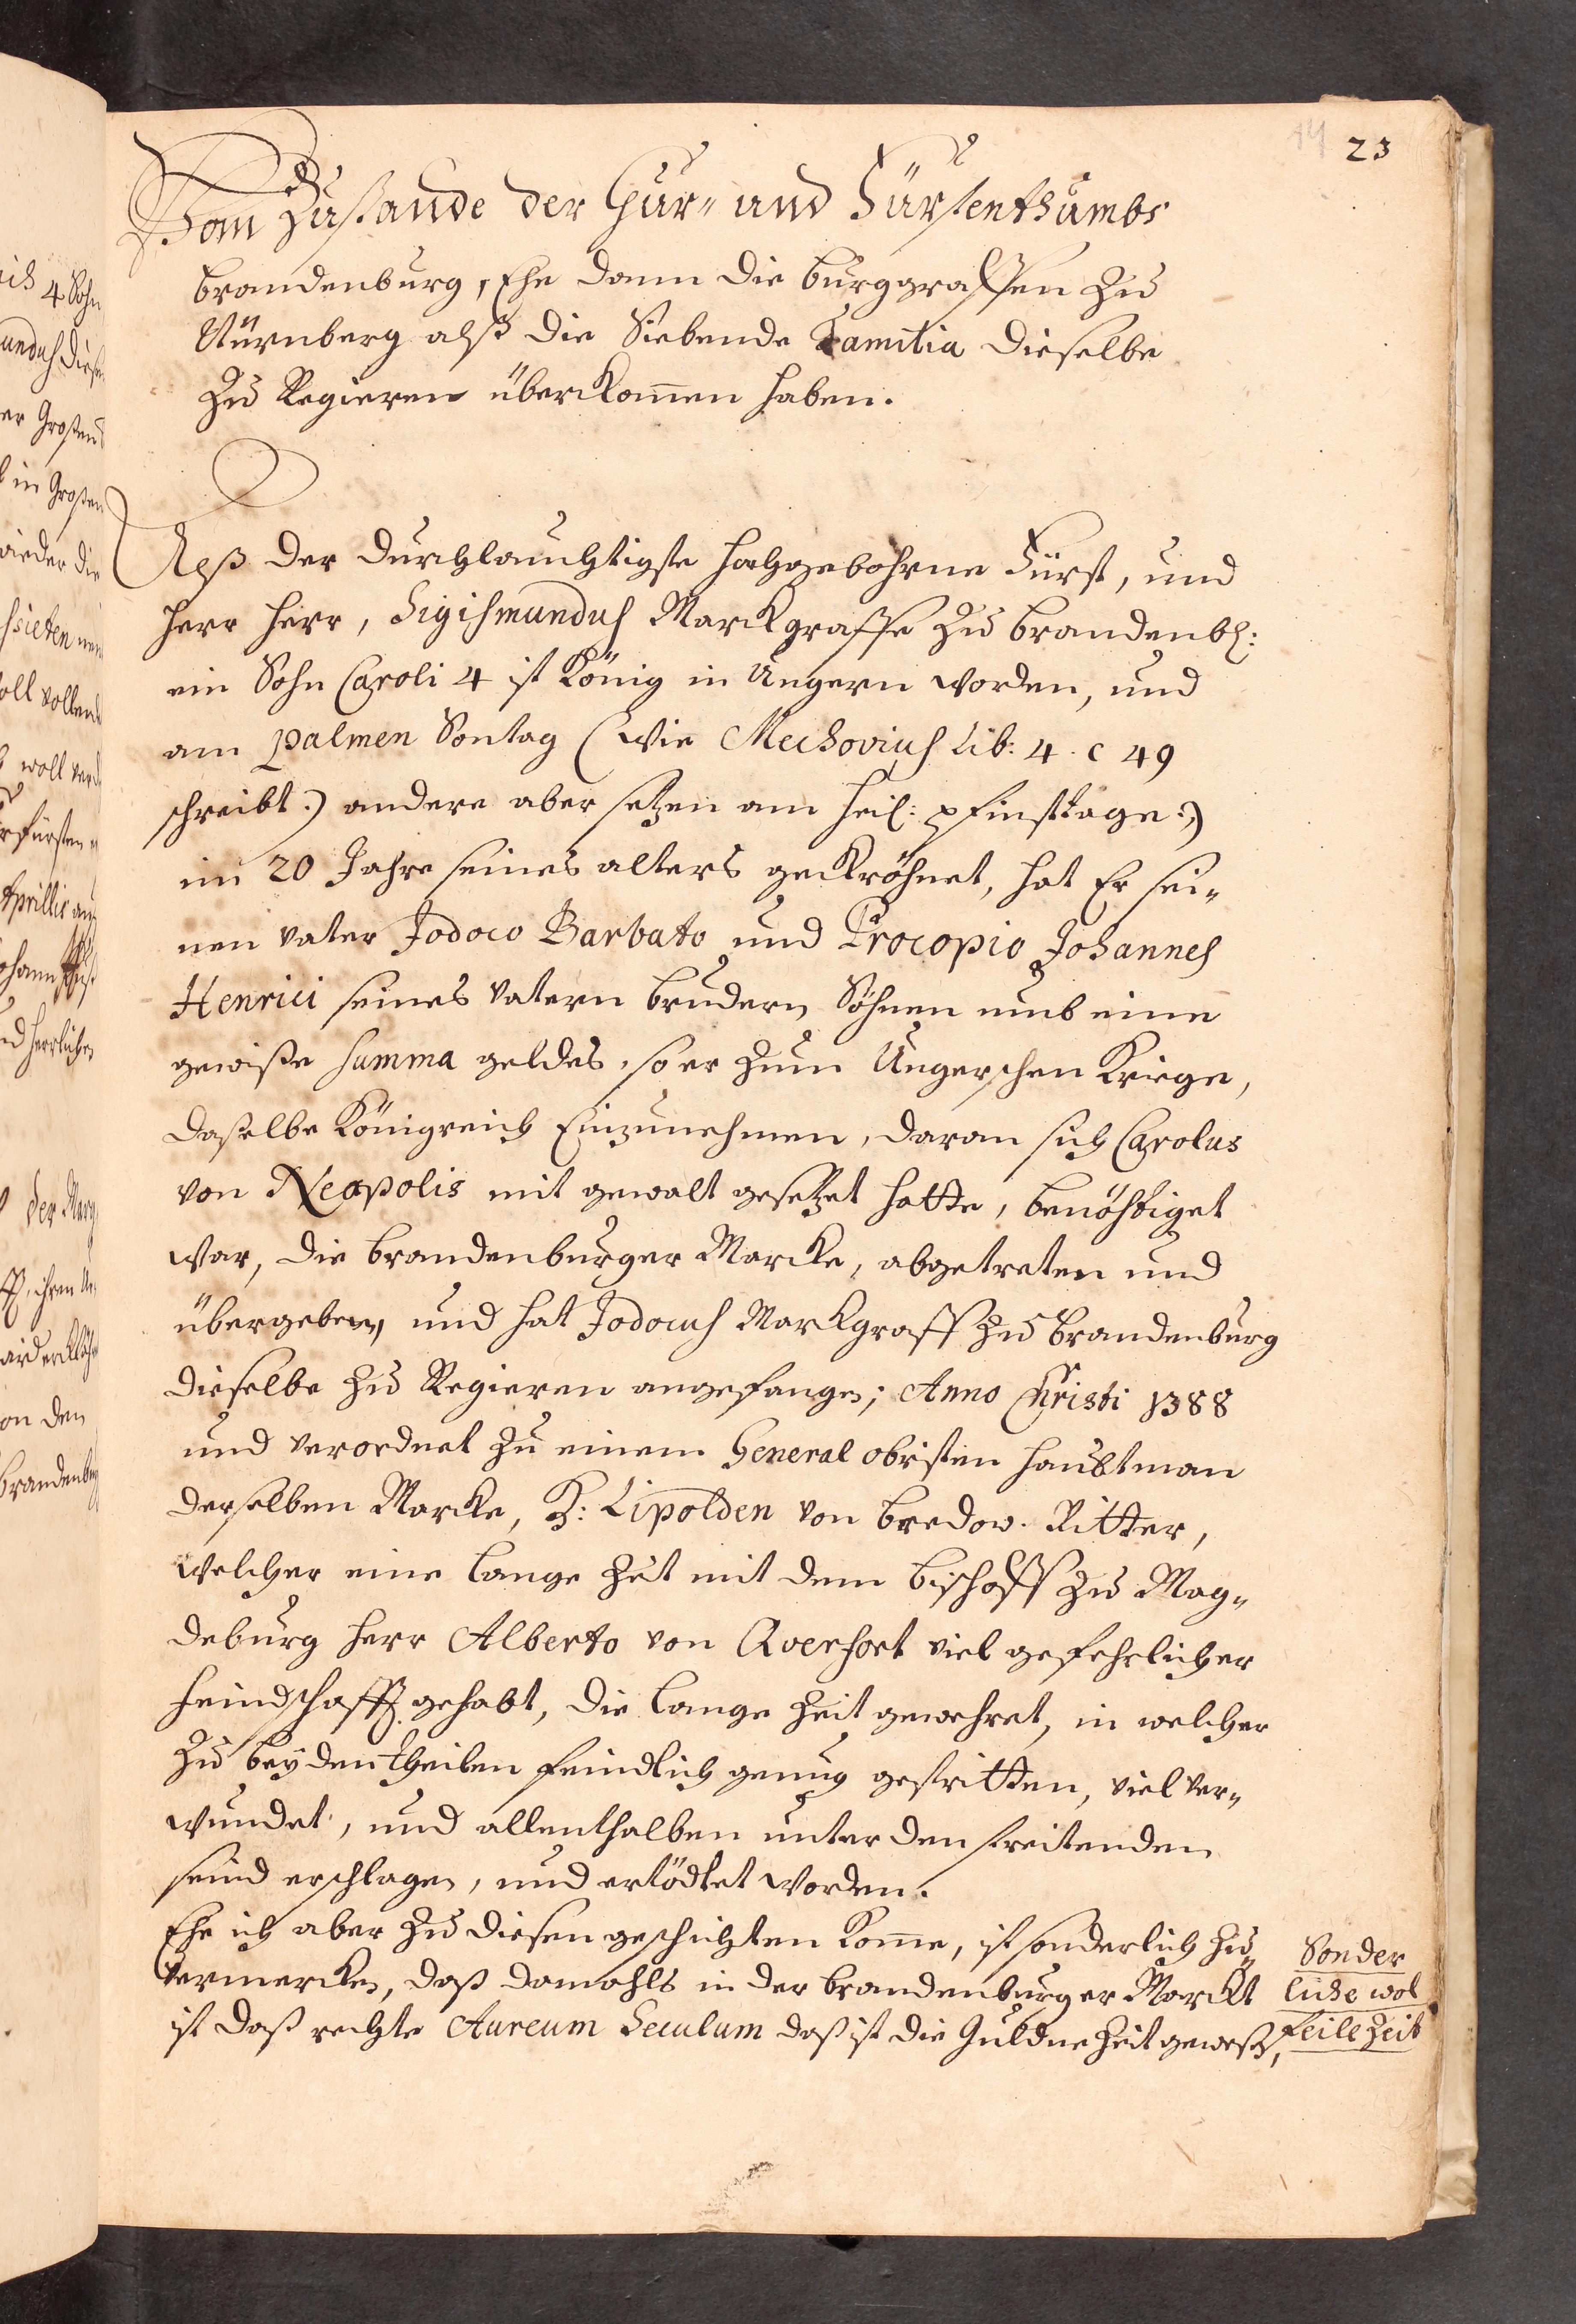 23
Vom Zustande der Chur- und Fürstenthumbs
Brandenburg, Ehe dann die Burggraffen zu
Nürnberg alß die Siebende Familia dieselbe
zu Regieren überkom̄en haben.
Alß der Durchlauchtigste hochgebohrne Fürst, und
Herr Herr, Sigismundus Marckgraffe zu Brandenb:
ein Sohn Caroli 4 ist König in Ungern worden, und
am palmen Sontag (wie Mechovius Lib: 4. c 49
schreibt:) andere aber setzen am Heil: pfinsttage:)
im 20 Jahre seines alters gekröhnet, hat Er sei-
nen Vater Jodoco Barbato und Procopio Johannes
Henrici seines Vatern Brudern Söhnen umb eine
gewiße summa geldes, so er zum Ungerschen Kriege,
daßelbe Königreich Einzunehmen, daran sich Carolus
von Neapolis mit gewalt gesetzet hatte, benöhtiget
war, die Brandenburger Marcke, abgetreten und
übergeben, und hat Jodocus Marckgraff zu Brandenburg
dieselbe zu Regieren angefangen; Anno Christi 1388
und verordnet zu einem General obristen Haubtman
derselben Marcke, H: Lipolden von Bredow. Ritter,
welcher eine lange Zeit mit dem Bischoff zu Mag-
deburg Herr Alberto von Qverfort viel gefehrlicher
feindschafft gehabt, die lange Zeit gewehret, in welcher
zu beyden theilen feindlich genug gestritten, viel ver-
wundet, und allenthalben unter den streitenden
seind erschlagen, und ertödtet worden.
Ehe ich aber zu diesen geschichten Kom̄e, ist sonderlich zu
vermercken, daß damahls in der Brandenburger Marckt
ist daß rechte Aureum Seculum daß ist die Güldne Zeit gewest,
Sonder
liche wol
feile Zeit